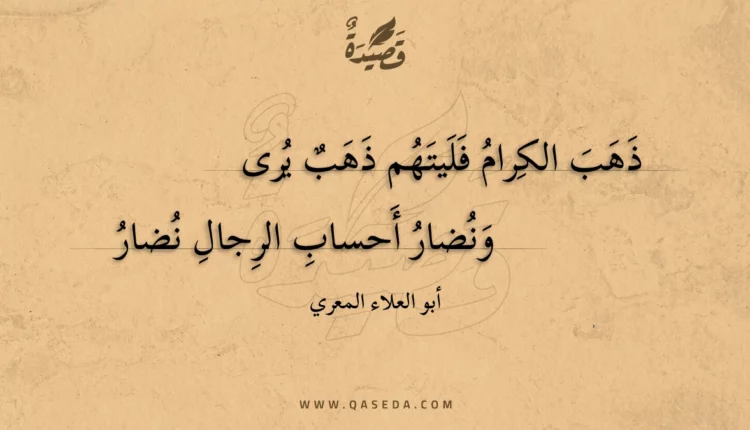 قَصِيدَةٌ
ذَهَبَ الكِرامُ فَلَيتَهُم ذَهَبٌ يُرى
وَنُضارُ أَحسابِ الرِجالِ نُضارُ
أبو العلاء المعري
WWW.QASEDA.COM